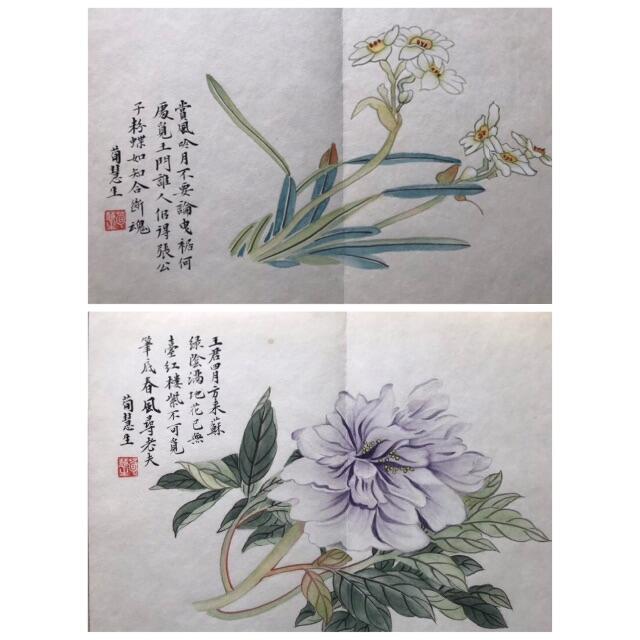 賞風吟月不要論曳裾何
處覓王門誰人伯得張公
子粉蝶如知合斷魂
荀慧生
王君四月方来蘇
緑陰滿地花已無
臺紅樓紫不可覓
筆底春風尋老夫
荀慧生